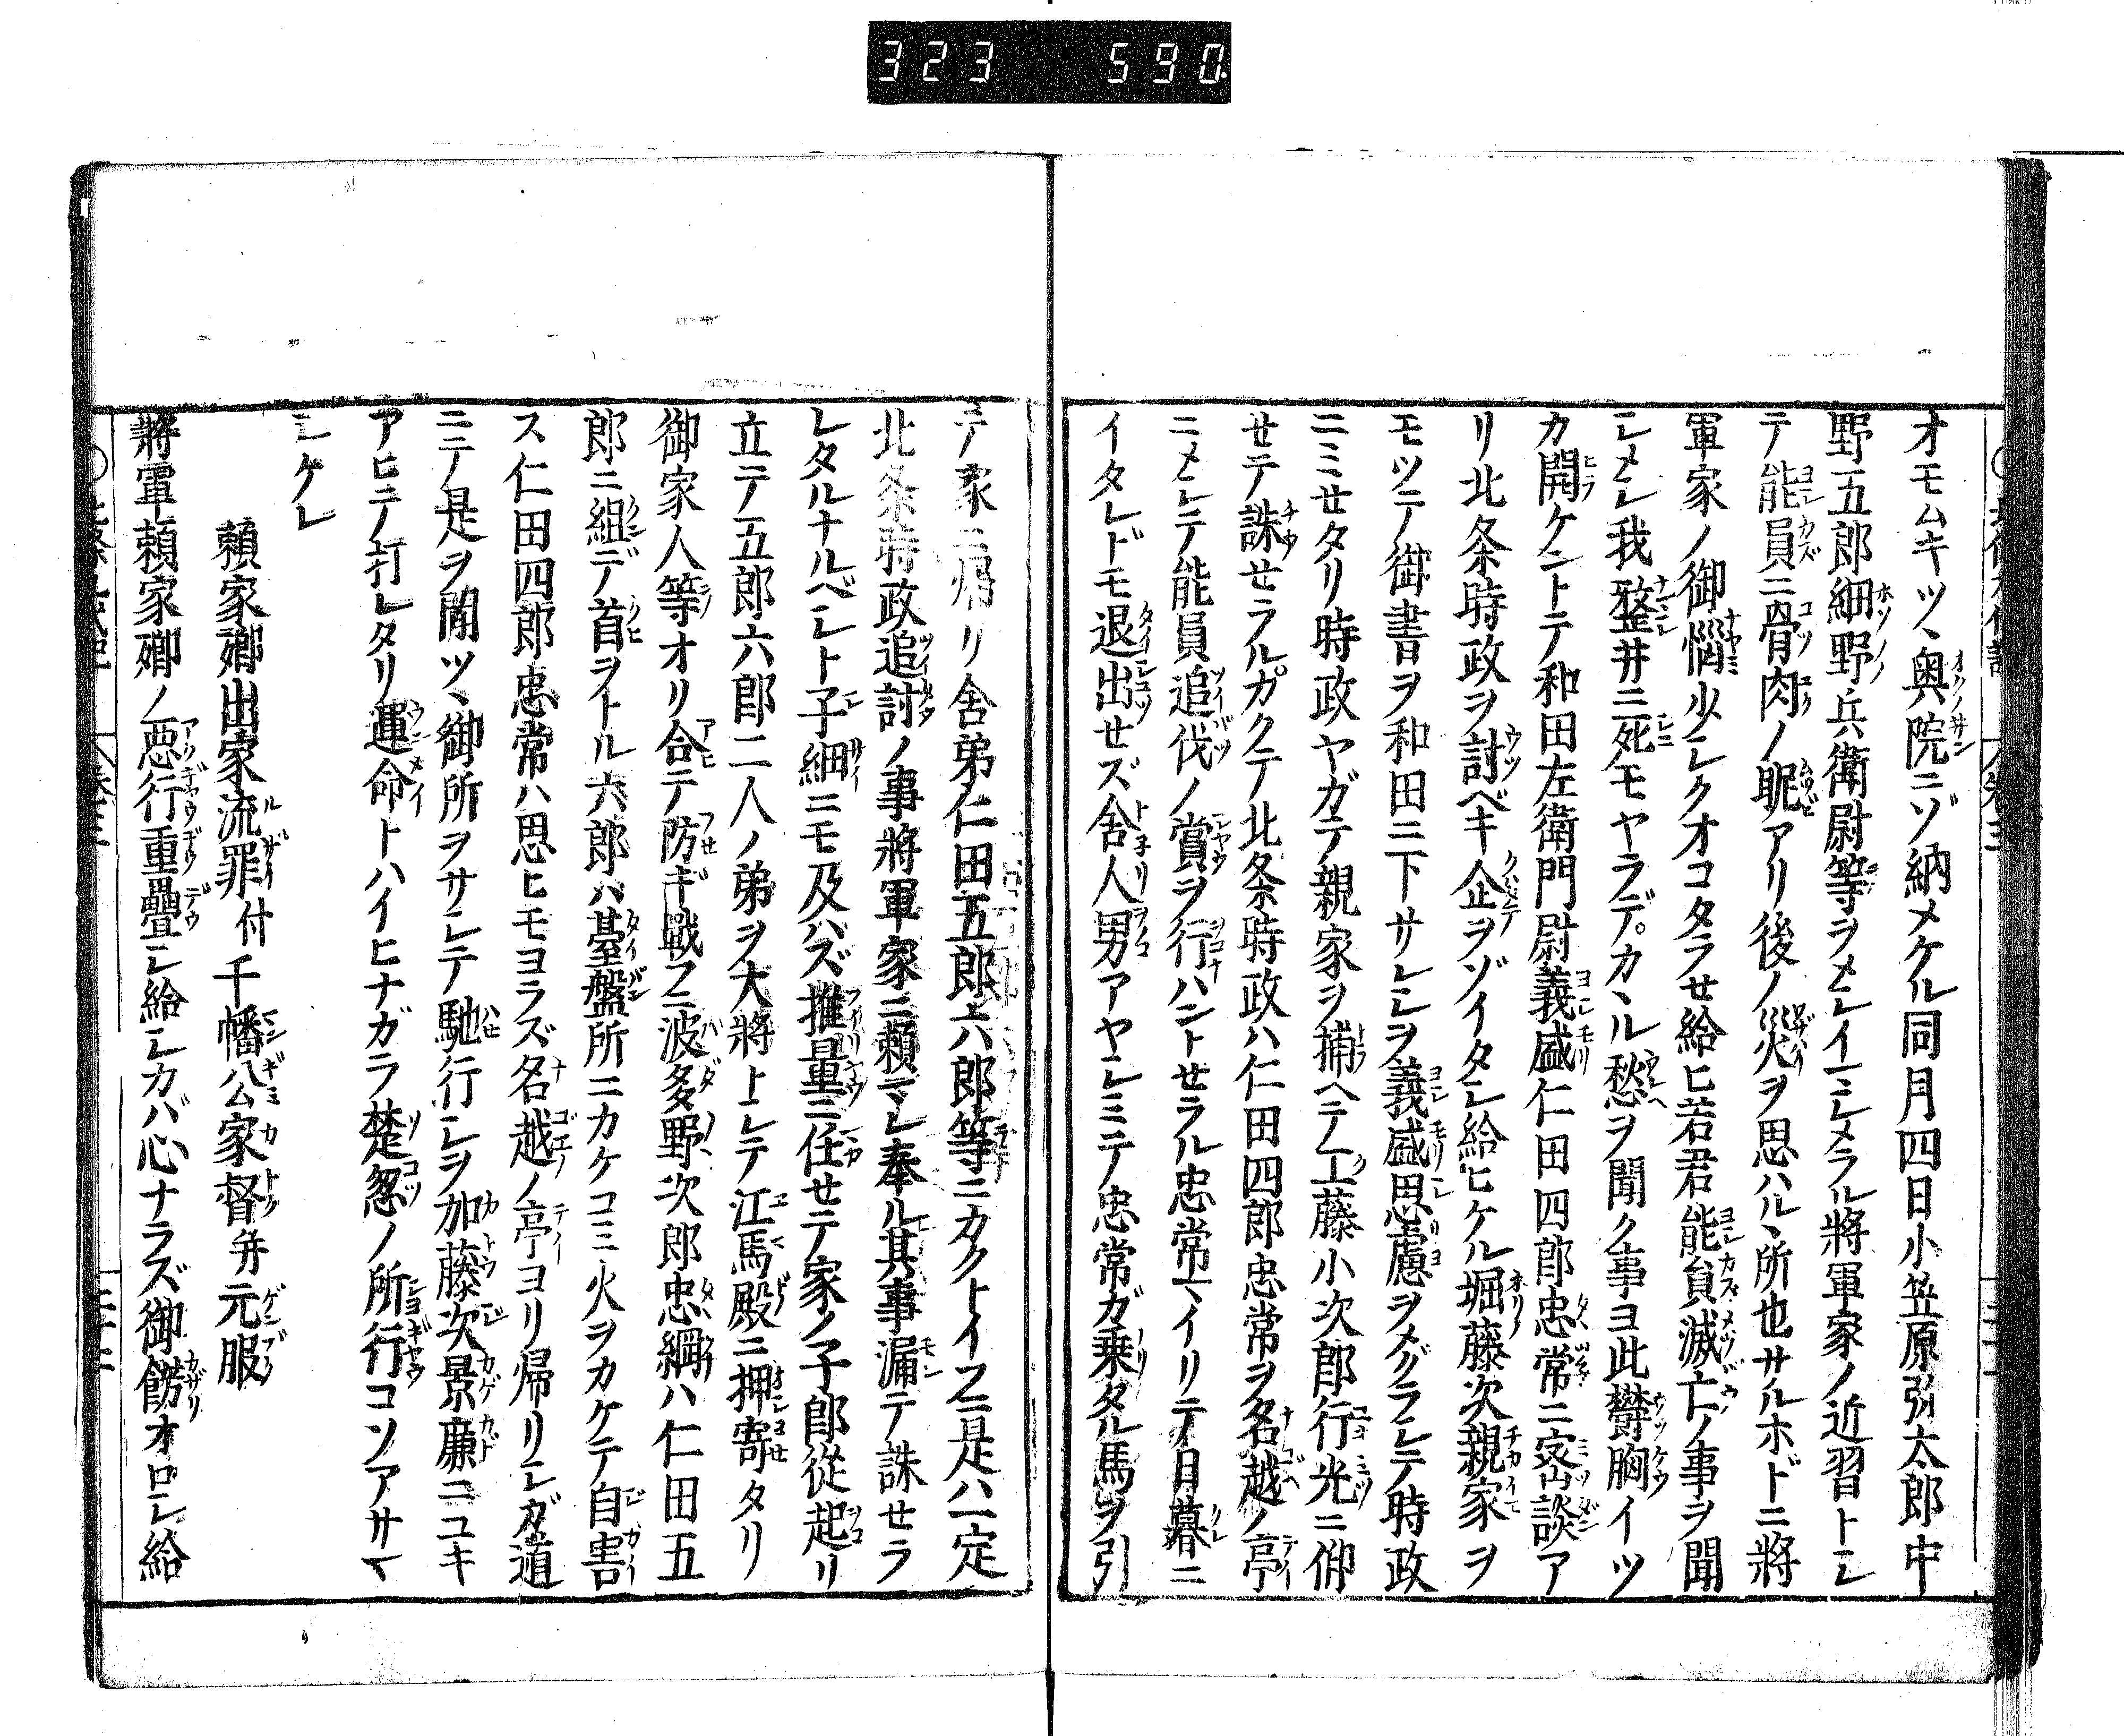 323 590
オモムキツヽ奥院ニゾ納メケル同月四日小笠原弥太郎中
野五郎細野兵衛尉等ヲメシイマシメラル將軍家ノ近習トシ
テ能員ニ骨肉ノ昵アリ後ノ災ヲ思ハルヽ所也サルホドニ將
軍家ノ御惱少シクオコタラセ給ヒ若君能員滅亡ノ事ヲ聞
シメシ我整井ニ死モヤラデカヽル愁ヲ聞ク事ヨ此欝胸イツ
カ開ケントテ和田左衛門尉義盛仁田四郎忠常ニ密談ア
リ北条時政ヲ討ベキ企ヲゾイタシ給ヒケル堀藤次親家ヲ
モツテ御書ヲ和田ニ下サレシヲ義盛思慮ヲメグラシテ時政
ニミセタリ時政ヤガテ親家ヲ捕ヘテ工藤小次郎行光ニ仰
セテ誅セラルカクテ北条時政ハ仁田四郎忠常ヲ名越ノ亭
ニメシテ能員追伐ノ賞ヲ行ハントセラル忠常マイリテ日暮ニ
イタレドモ退出セズ舍人男アヤシミテ忠常ガ乗タル馬ヲ引
テ家ニ帰リ舍弟仁田五郎六郎等ニカクトイフニ是ハ一定
北条時政追討ノ事將軍家ニ頼マレ奉ル其事漏テ誅セラ
レタルナルベシト子細ニモ及ハズ推量ニ任セテ家ノ子郎從起リ
立テ五郎六郎二人ノ弟ヲ大將トシテ江馬殿ニ押寄タリ
御家人等オリ合テ防ギ戰フニ波多野次郎忠綱ハ仁田五
郎ニ組デ首ヲトル六郎ハ臺盤所ニカケコミ火ヲカケテ自害
ス仁田四郎忠常ハ思ヒモヨラズ名越ノ亭ヨリ帰リシガ道
ニテ是ヲ聞ツヽ御所ヲサシテ馳行シヲ加藤次景廉ニユキ
アヒテ打レタリ運命トハイヒナガラ楚忽ノ所行コソアサマ
シケレ
頼家卿出家流罪付千幡公家督并元服
將軍頼家卿ノ惡行重疊シ給シカバ心ナラズ御餝オロシ給